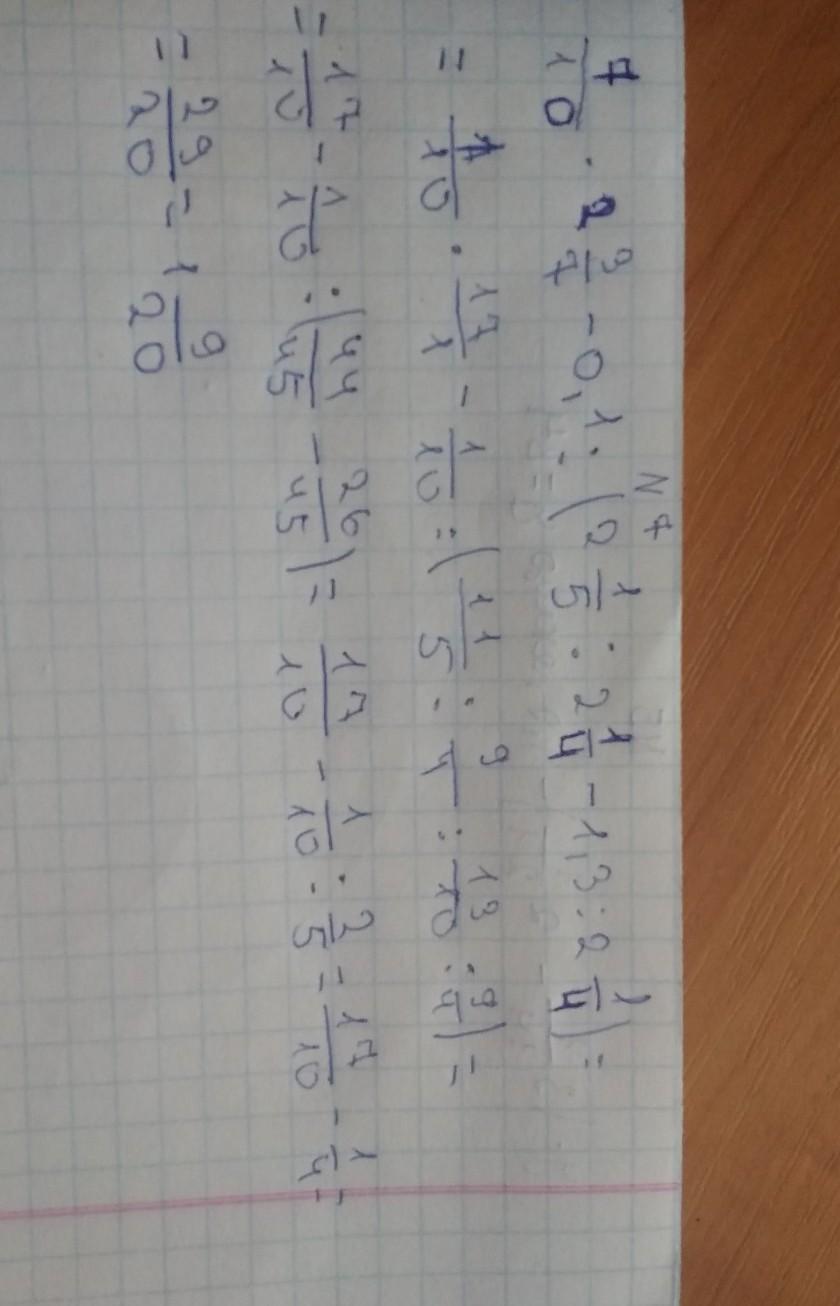 N 7
7/10 · 2 3/7 - 0,1 : (2 1/5 : 2 1/4 - 1,3 : 2 1/4) =
= 1/10 · 17/1 - 1/10 : (11/5 : 9/4 : 13/10 : 9/4) =
= 17/10 - 1/10 : (44/45 - 26/45) = 17/10 - 1/10 : 2/5 = 17/10 - 1/4 =
= 29/20 = 1 9/20